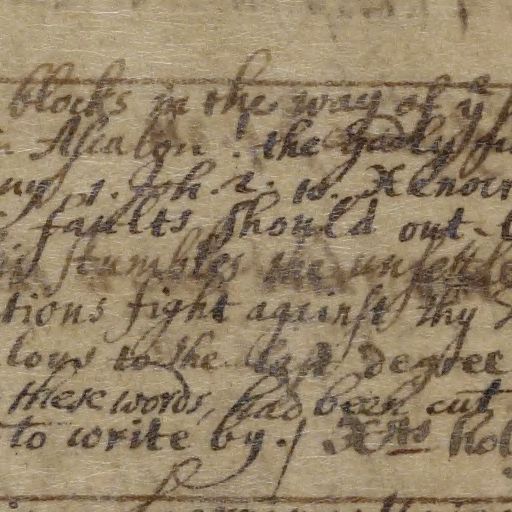 blocks in the way of yᵉ
Ascalon. the Godly
1. Joh. 2. 10.
faults should out-
stumbles the unsettle
tions fight against thy
lous to the last degree
these words, had been cut
to write by. / Xᵗˢ hol